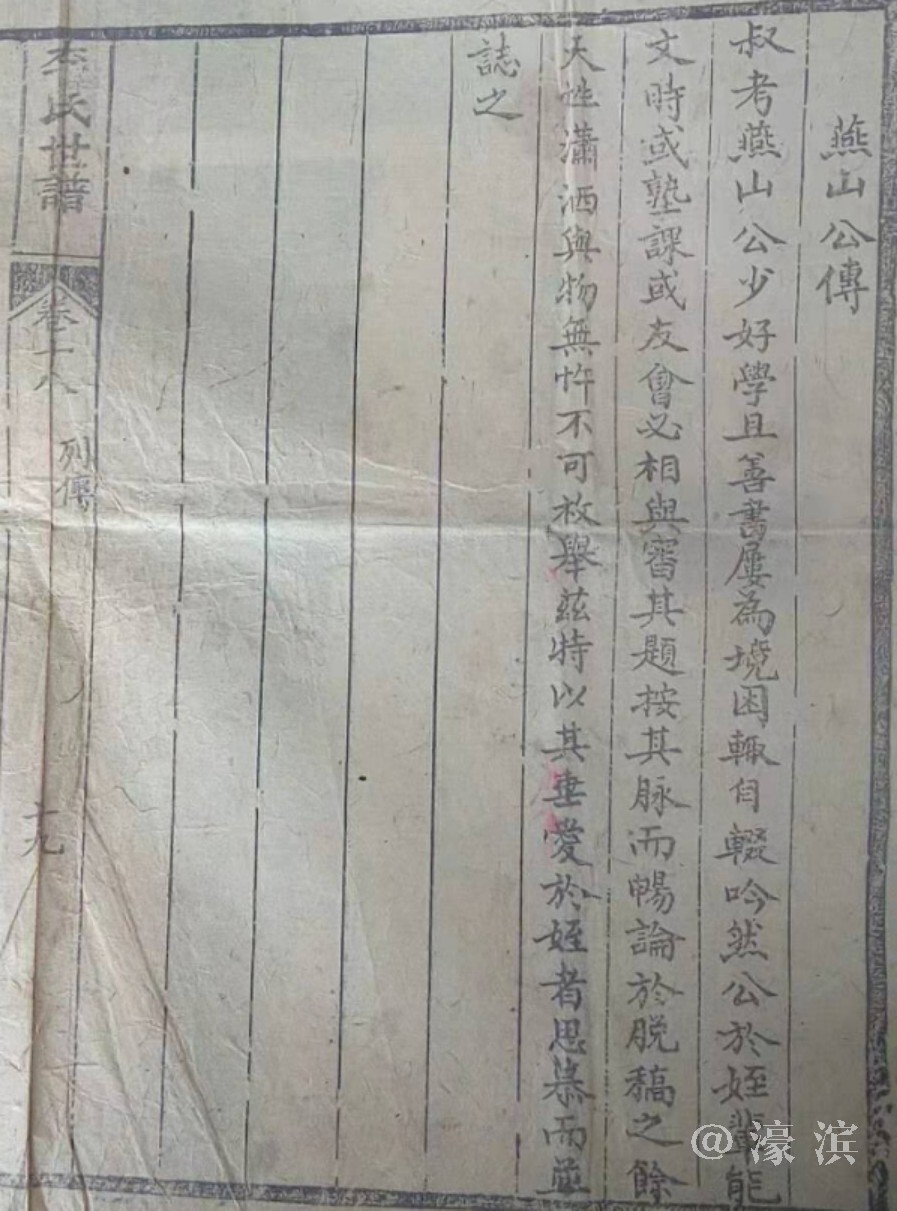 燕山公傳
叔考燕山公少好學且善書屢為境困輒自輟吟然公於姪輩能
文時或塾課或友會必相與審其題按其脉而暢論於脱稿之餘
天性瀟洒與物無忤不可枚舉茲特以其垂愛於姪者思慕而並
誌之
李氏世譜
卷十八
列傳
十九
@濠滨